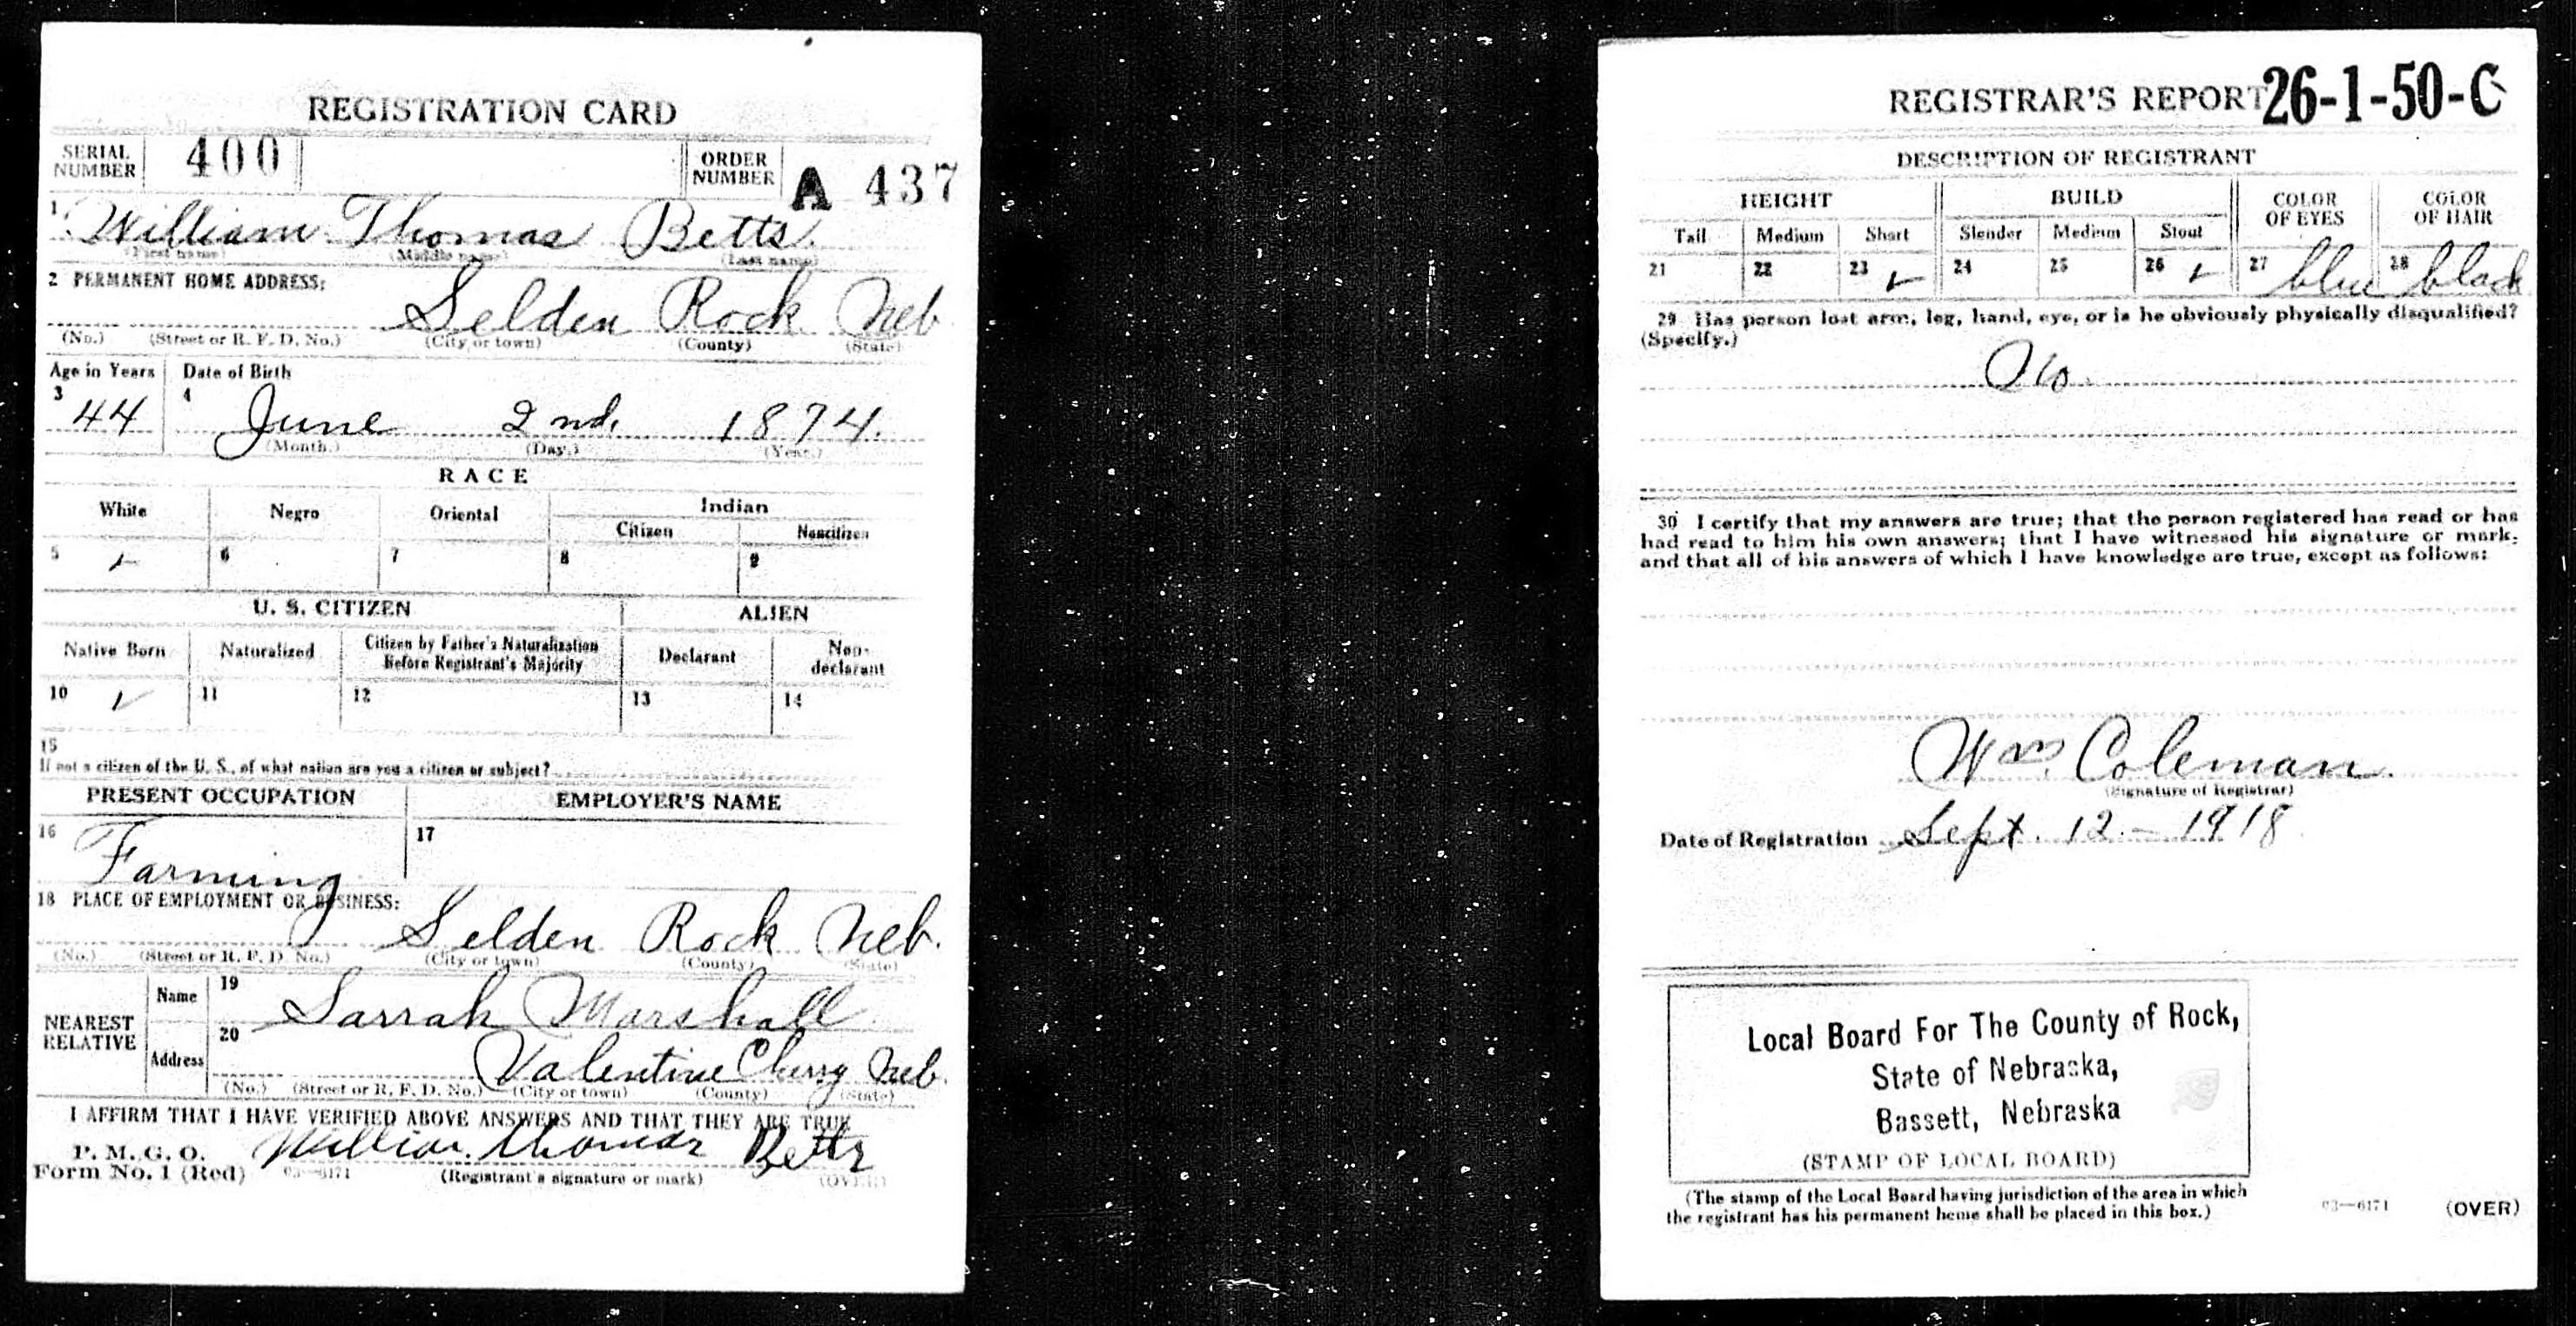 REGISTRATION CARD
SERIAL NUMBER 400 ORDER NUMBER A 437
1 William Thomas Betts.
(First name) (Middle name) (Last name)
2 PERMANENT HOME ADDRESS:
Selden Rock Neb
(No.) (Street or R. F. D. No.) (City or town) (County) (State)
Age in Years Date of Birth
3 44 4 June 2nd. 1874.
(Month.) (Day.) (Year.)
RACE
White Negro Oriental Indian
Citizen Noncitizen
5 ✓ 6 7 8 9
U. S. CITIZEN ALIEN
Native Born Naturalized Citizen by Father's Naturalization Before Registrant's Majority Declarant Non-declarant
10 ✓ 11 12 13 14
15
If not a citizen of the U. S., of what nation are you a citizen or subject?
PRESENT OCCUPATION EMPLOYER'S NAME
16 Farming 17
18 PLACE OF EMPLOYMENT OR BUSINESS:
Selden Rock Neb.
(No.) (Street or R. F. D. No.) (City or town) (County) (State)
NEAREST RELATIVE
Name 19 Sarrah Marshall
Address 20 Valentine Cherry Neb.
(No.) (Street or R. F. D. No.) (City or town) (County) (State)
I AFFIRM THAT I HAVE VERIFIED ABOVE ANSWERS AND THAT THEY ARE TRUE
P. M. G. O.
Form No. 1 (Red) 03—6171 William Thomas Betts
(Registrant's signature or mark) (OVER)
REGISTRAR'S REPORT 26-1-50-C
DESCRIPTION OF REGISTRANT
HEIGHT BUILD COLOR OF EYES COLOR OF HAIR
Tall Medium Short Slender Medium Stout
21 22 23 ✓ 24 25 26 ✓ 27 blue 28 black
29 Has person lost arm, leg, hand, eye, or is he obviously physically disqualified?
(Specify.)
No.
30 I certify that my answers are true; that the person registered has read or has
had read to him his own answers; that I have witnessed his signature or mark,
and that all of his answers of which I have knowledge are true, except as follows:
Wm. Coleman.
(Signature of Registrar)
Date of Registration Sept. 12 - 1918
Local Board For The County of Rock,
State of Nebraska,
Bassett, Nebraska
(STAMP OF LOCAL BOARD)
(The stamp of the Local Board having jurisdiction of the area in which
the registrant has his permanent home shall be placed in this box.)
03—6171 (OVER)